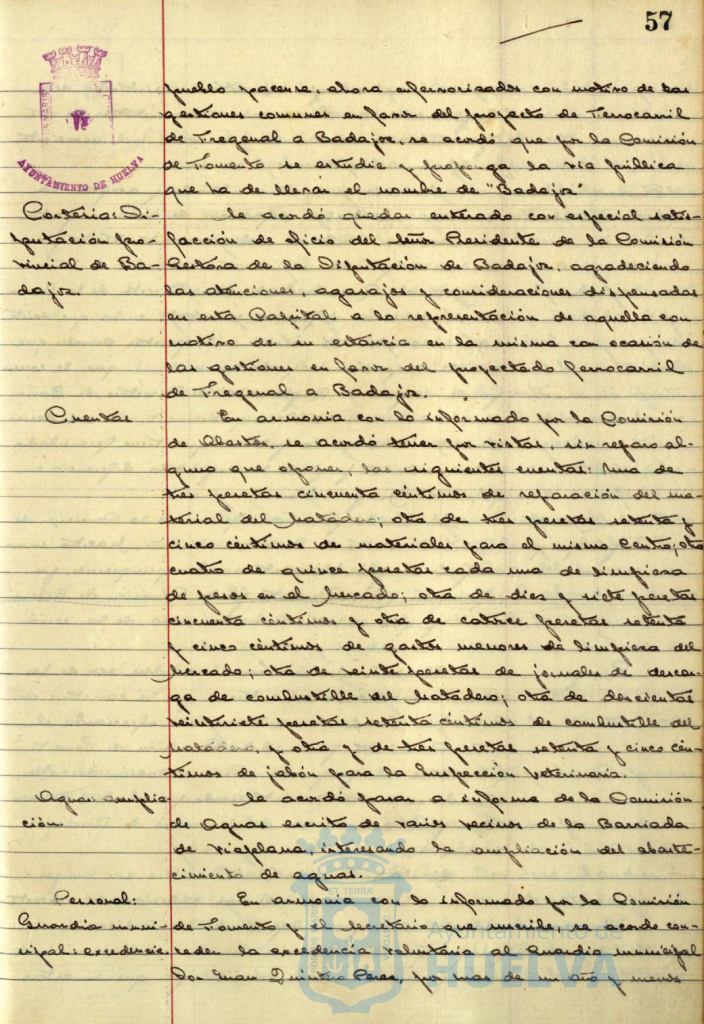 57
AYUNTAMIENTO DE HUELVA
pueblo pacense, ahora enfervorizados con motivo de las
gestiones comunes en favor del proyecto de Ferrocarril
de Fregenal a Badajoz, se acordó que por la Comisión
de Fomento se estudie y proponga la via pública
que ha de llevar el nombre de "Badajoz"
Cortesia: Di-
putación pro-
vincial de Ba-
dajoz.
Se acordó quedar enterado con especial satis-
facción de oficio del Señor Presidente de la Comisión
Gestora de la Diputación de Badajoz, agradeciendo
las atenciones, agasajos y consideraciones dispensadas
en esta Capital a la representación de aquella con
motivo de su estancia en la misma con ocasión de
las gestiones en favor del proyectado ferrocarril
de Fregenal a Badajoz.
Cuentas
En armonia con lo informado por la Comisión
de Abastos, se acordó tener por vistas, sin reparo al-
guno que oponer, las siguientes cuentas: Una de
tres pesetas cincuenta céntimos de reparación del ma-
terial del Matadero; otra de tres pesetas setenta y
cinco céntimos de materiales para el mismo Centro; otra
cuatro de quince pesetas cada una de limpieza
de pesos en el Mercado; otra de diez y siete pesetas
cincuenta céntimos y otra de catorce pesetas setenta
y cinco céntimos de gastos menores de limpieza del
Mercado; otra de veinte pesetas de jornales de descar-
ga de combustible del Matadero; otra de doscientas
veintisiete pesetas setenta céntimos de combustible del
Matadero, y otra y de tres pesetas setenta y cinco cén-
timos de jabón para la Inspección Veterinaria.
Aguas: amplia-
ción.
Se acordó pasar a informe de la Comisión
de Aguas escrito de varios vecinos de la Barriada
de Viaplana, interesando la ampliación del abaste-
cimiento de aguas.
Personal:
Guardia muni-
cipal: excedencia.
En armonia con lo informado por la Comisión
de Fomento y el Secretario que suscribe, se acordó con-
ceder la excedencia voluntaria al Guardia municipal
Don Juan Quintero Perez, por mas de un año y menos
Ayuntamiento de
HUELVA